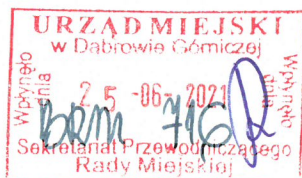 URZĄD MIEJSKI
w Dąbrowie Górniczej
Wpłynęło
dnia
25 -06- 2021
Wpłynęło
dnia
BRM 716
Sekretariat Przewodniczącego
Rady Miejskiej